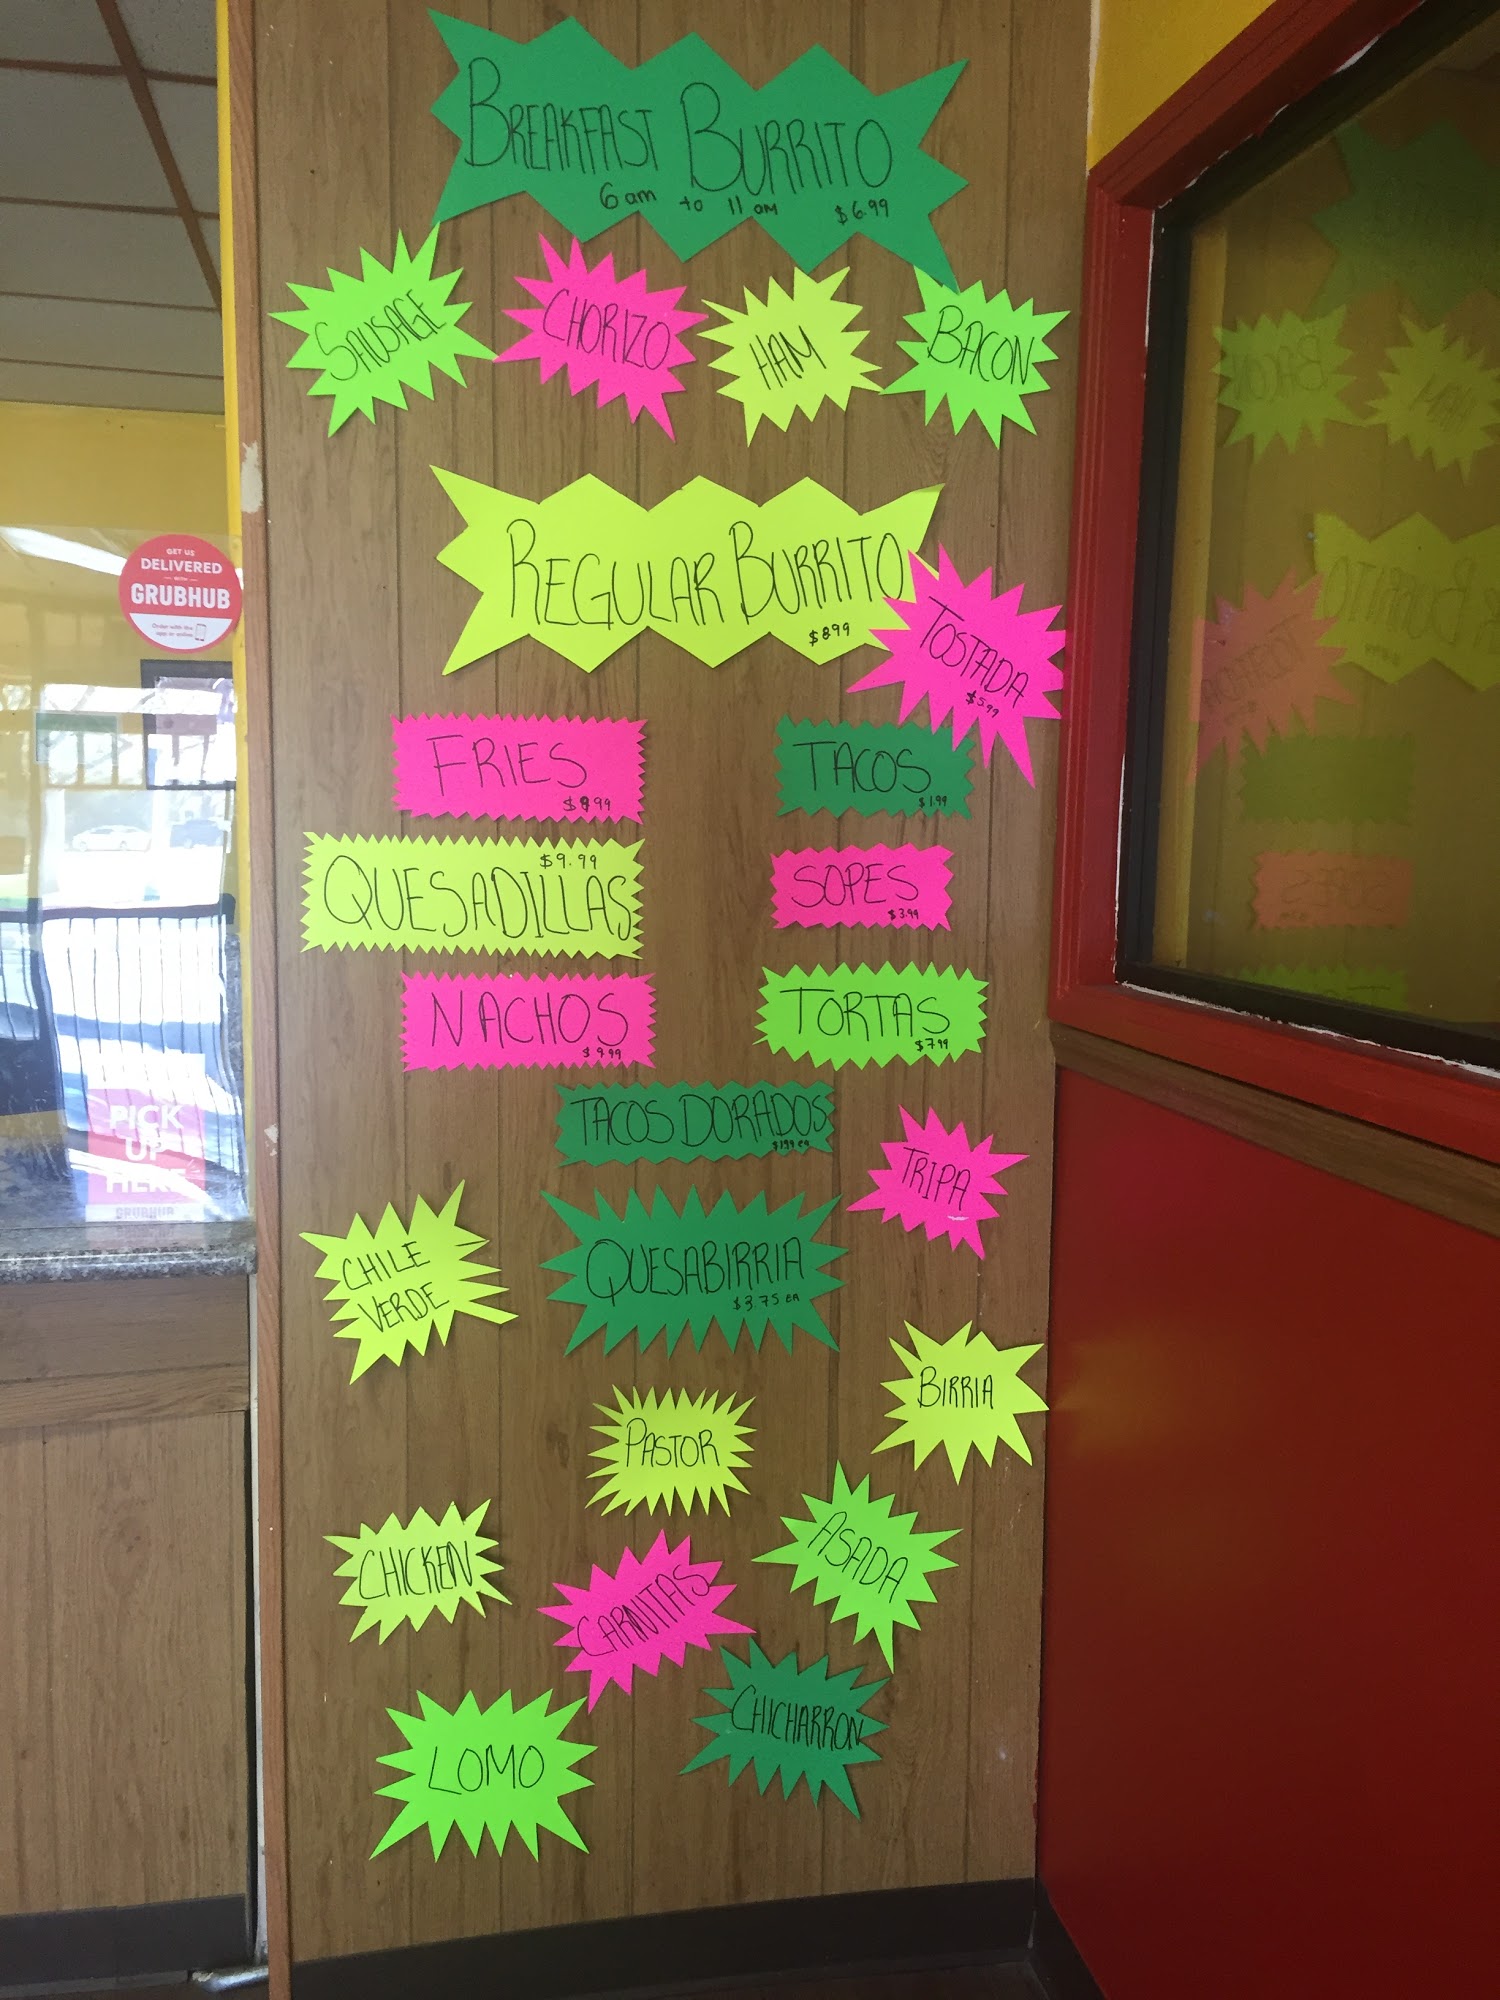 BREAKFAST BURRITO
6 am to 11 am $6.99
SAUSAGE
CHORIZO
HAM
BACON
REGULAR BURRITO
$8.99
TOSTADA
$5.99
FRIES
TACOS
$1.99
$9.99
QUESADILLAS
SOPES
$3.99
NACHOS
$9.99
TORTAS
$7.99
TACOS DORADOS
$1.99 EA
TRIPA
CHILE
VERDE
QUESABIRRIA
$3.75 EA
BIRRIA
PASTOR
ASADA
CHICKEN
CARNITAS
CHICHARRON
LOMO
GET US
DELIVERED
WITH
GRUBHUB
Order with the
app or online
PICK
UP
HERE
GRUBHUB
BACON
HAM
BURRITO
TOSTADA
SOPES